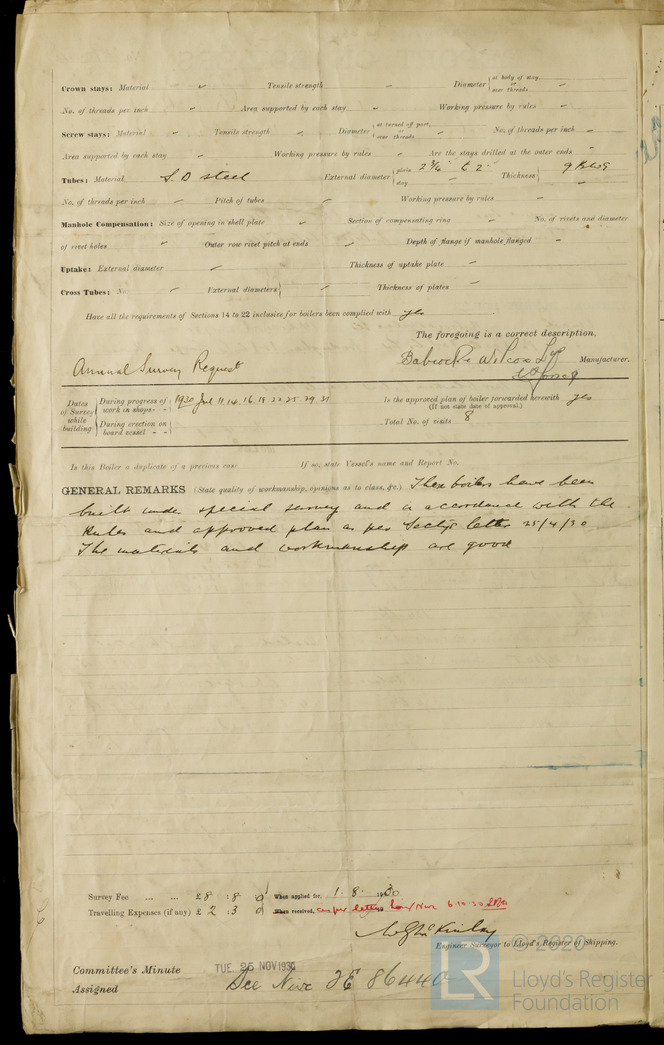 Crown stays: Material ✓ Tensile strength – Diameter { at body of stay, or over threads –
No. of threads per inch ✓ Area supported by each stay ✓ Working pressure by rules –
Screw stays: Material – Tensile strength ✓ Diameter { at turned off part, or over threads – No. of threads per inch –
Area supported by each stay ✓ Working pressure by rules – Are the stays drilled at the outer ends –
Tubes: Material S. D steel External diameter { plain 2 3/16" & 2" stay – Thickness { 9 BWG –
No. of threads per inch – Pitch of tubes – Working pressure by rules –
Manhole Compensation: Size of opening in shell plate – Section of compensating ring – No. of rivets and diameter
of rivet holes – Outer row rivet pitch at ends – Depth of flange if manhole flanged –
Uptake: External diameter – Thickness of uptake plate –
Cross Tubes: No – External diameters { – Thickness of plates –
Have all the requirements of Sections 14 to 22 inclusive for boilers been complied with yes
The foregoing is a correct description,
Babcock & Wilcox Ld Manufacturer.
Annual Survey Request
Dates of Survey while building { During progress of work in shops - - 1930 11. 14. 16. 18 22 25 29. 31
During erection on board vessel - -
Is the approved plan of boiler forwarded herewith yes
(If not state date of approval.)
Total No. of visits 8
Is this Boiler a duplicate of a previous case If so, state Vessel's name and Report No.
GENERAL REMARKS (State quality of workmanship, opinions as to class, &c.) These boilers have been
built under special survey and in accordance with the
Rules and approved plan as per Secty's letter 25/4/30
The materials and workmanship are good
Survey Fee ... ... £ 8 : 8 : 0 When applied for, 1. 8. 1930
Travelling Expenses (if any) £ 2 : 3 : 0 When received, as per letter 6.10.30
Engineer Surveyor to Lloyd's Register of Shipping.
Committee's Minute TUE. 25 NOV 1930
Assigned See Nwc JE 86440
© 2020
LR
Lloyd's Register
Foundation